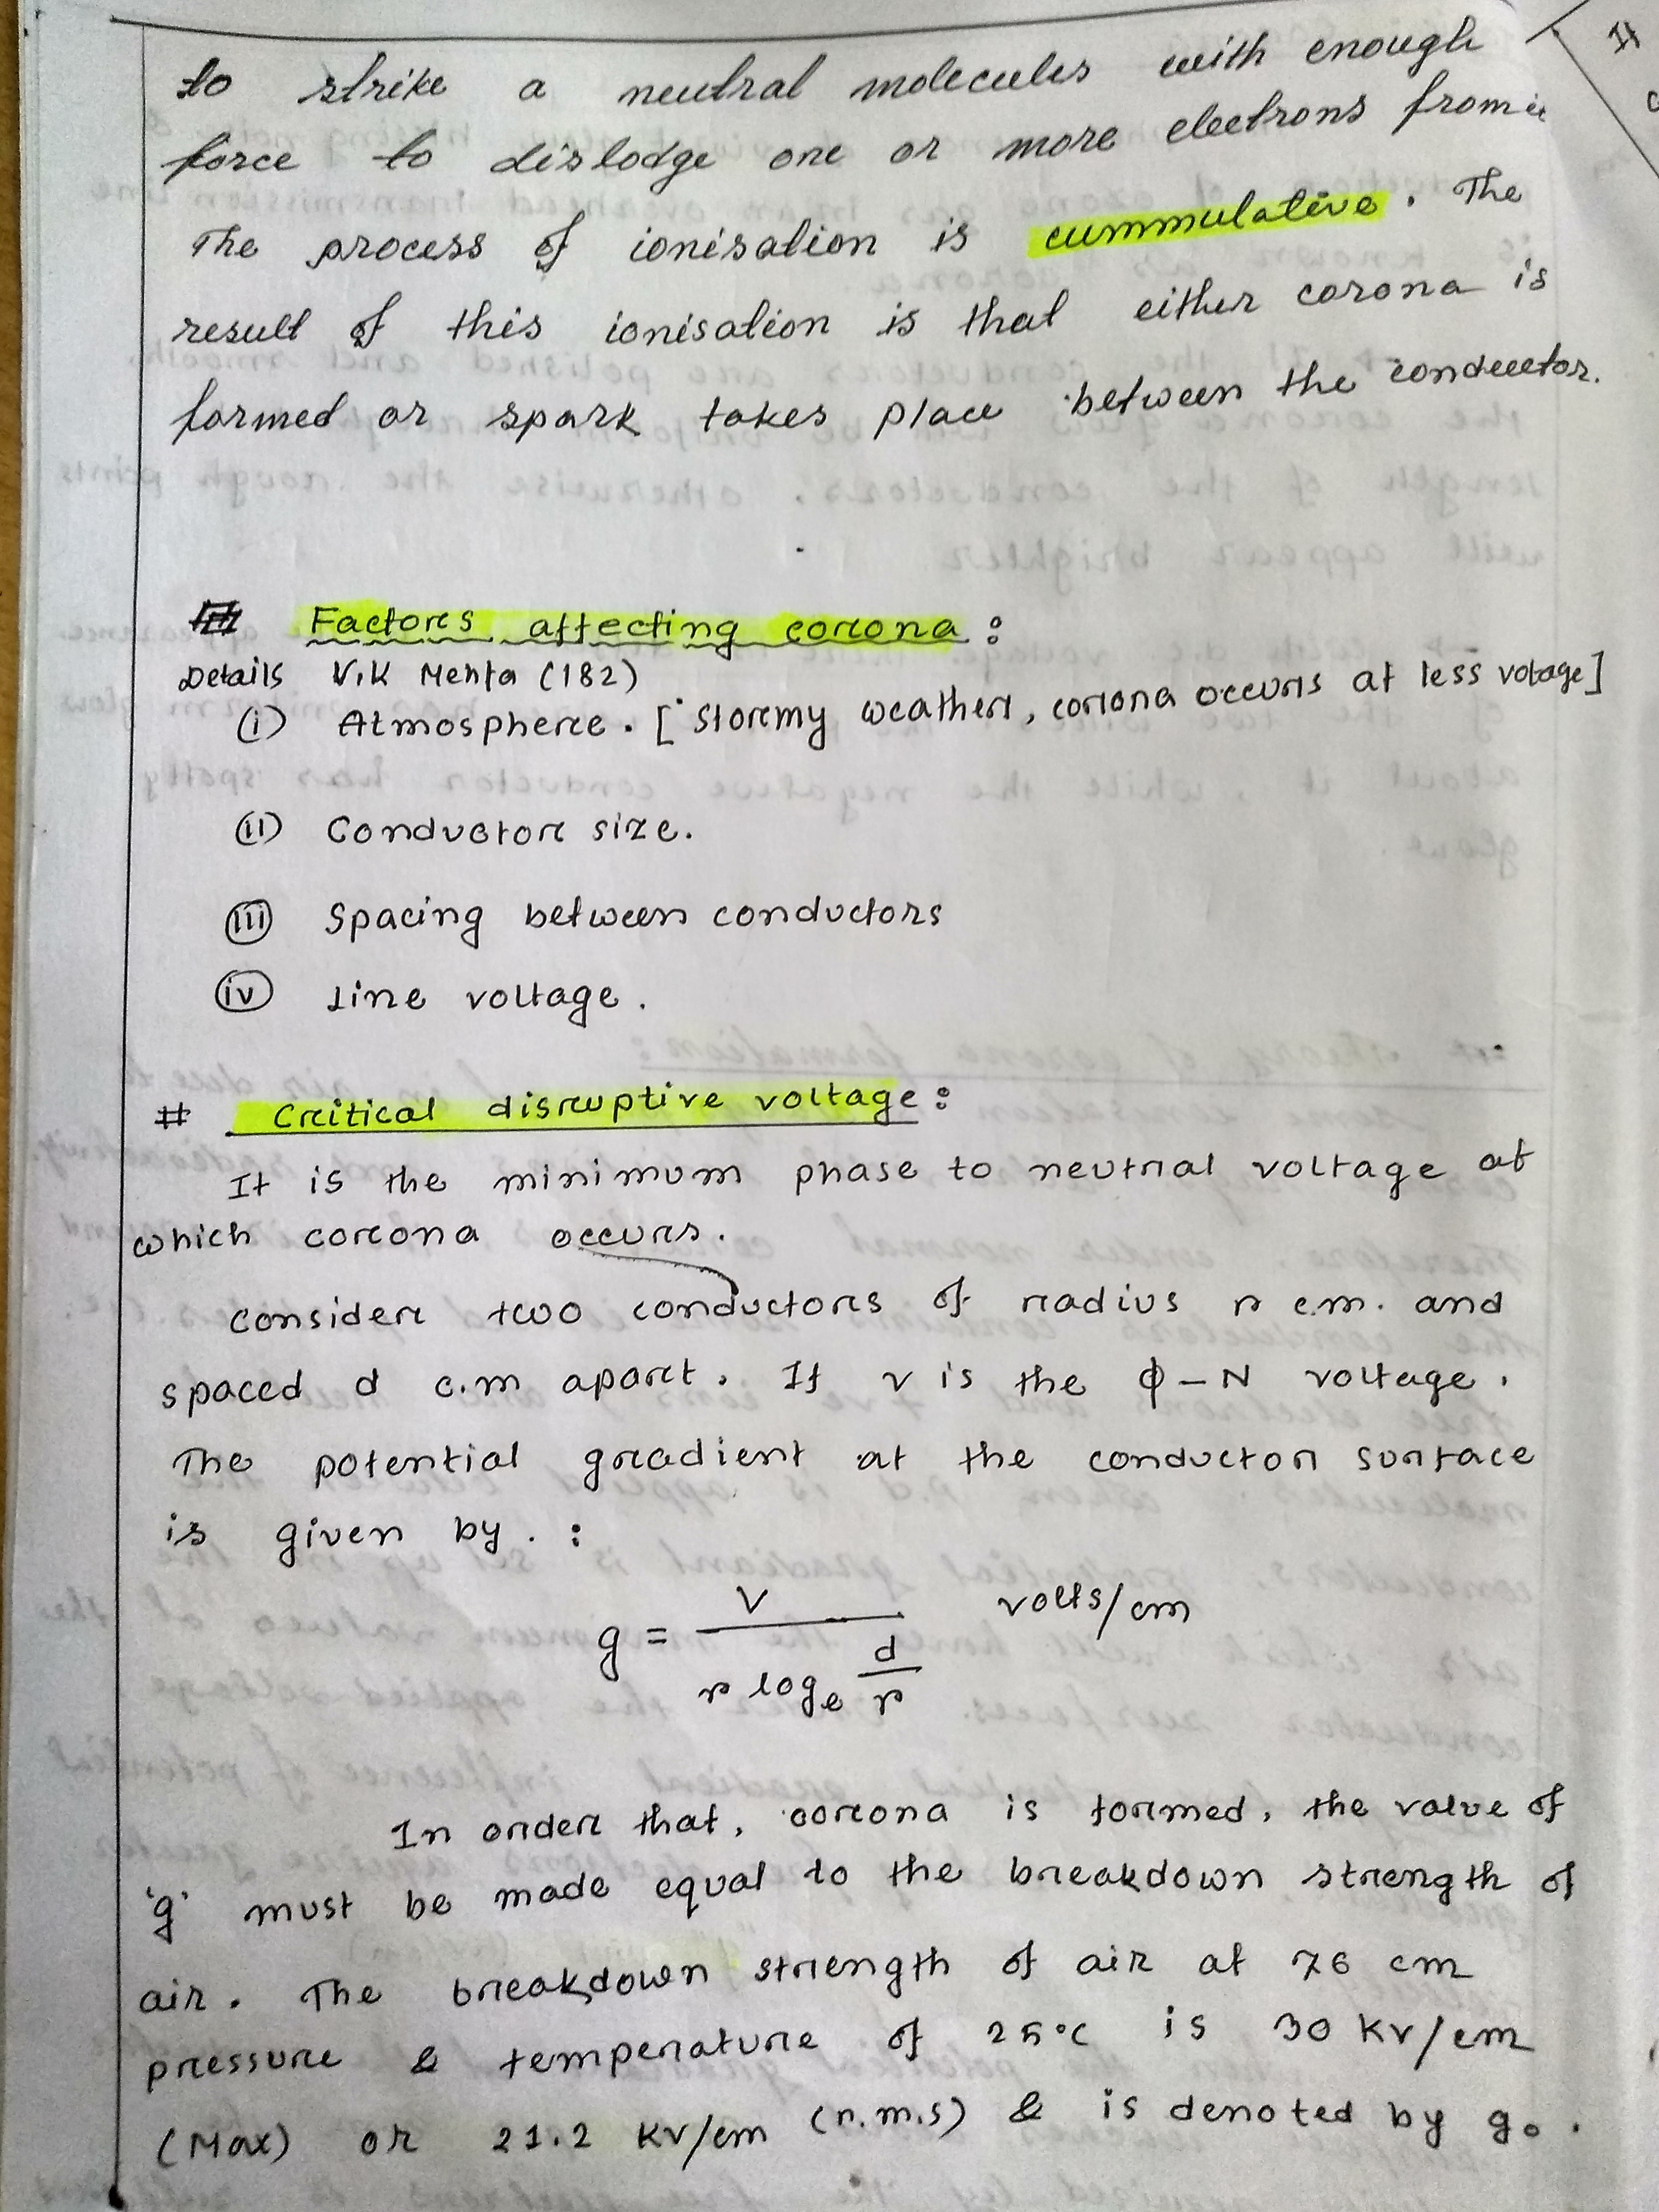 to strike a neutral molecules with enough
force to dislodge one or more electrons from it
The process of ionisation is cummulative. The
result of this ionisation is that either corona is
formed or spark takes place between the conductor.
# Factors affecting corona :
Details V.K Mehta (182)
(i) Atmosphere. [Stormy weather, corona occurs at less votage]
(ii) Conductor size.
(iii) Spacing between conductors
(iv) Line voltage.
# Critical disruptive voltage :
It is the minimum phase to neutral voltage at
which corona occurs.
Consider two conductors of radius r c.m. and
spaced d c.m apart. If v is the ϕ-N voltage.
The potential gradient at the conductor surface
is given by. :
g = V / (r logₑ d/r) volts/cm
In order that, corona is formed, the value of
'g' must be made equal to the breakdown strength of
air. The breakdown strength of air at 76 cm
pressure & temperature of 25°C is 30 KV/cm
(Max) or 21.2 KV/cm (r.m.s) & is denoted by g₀.